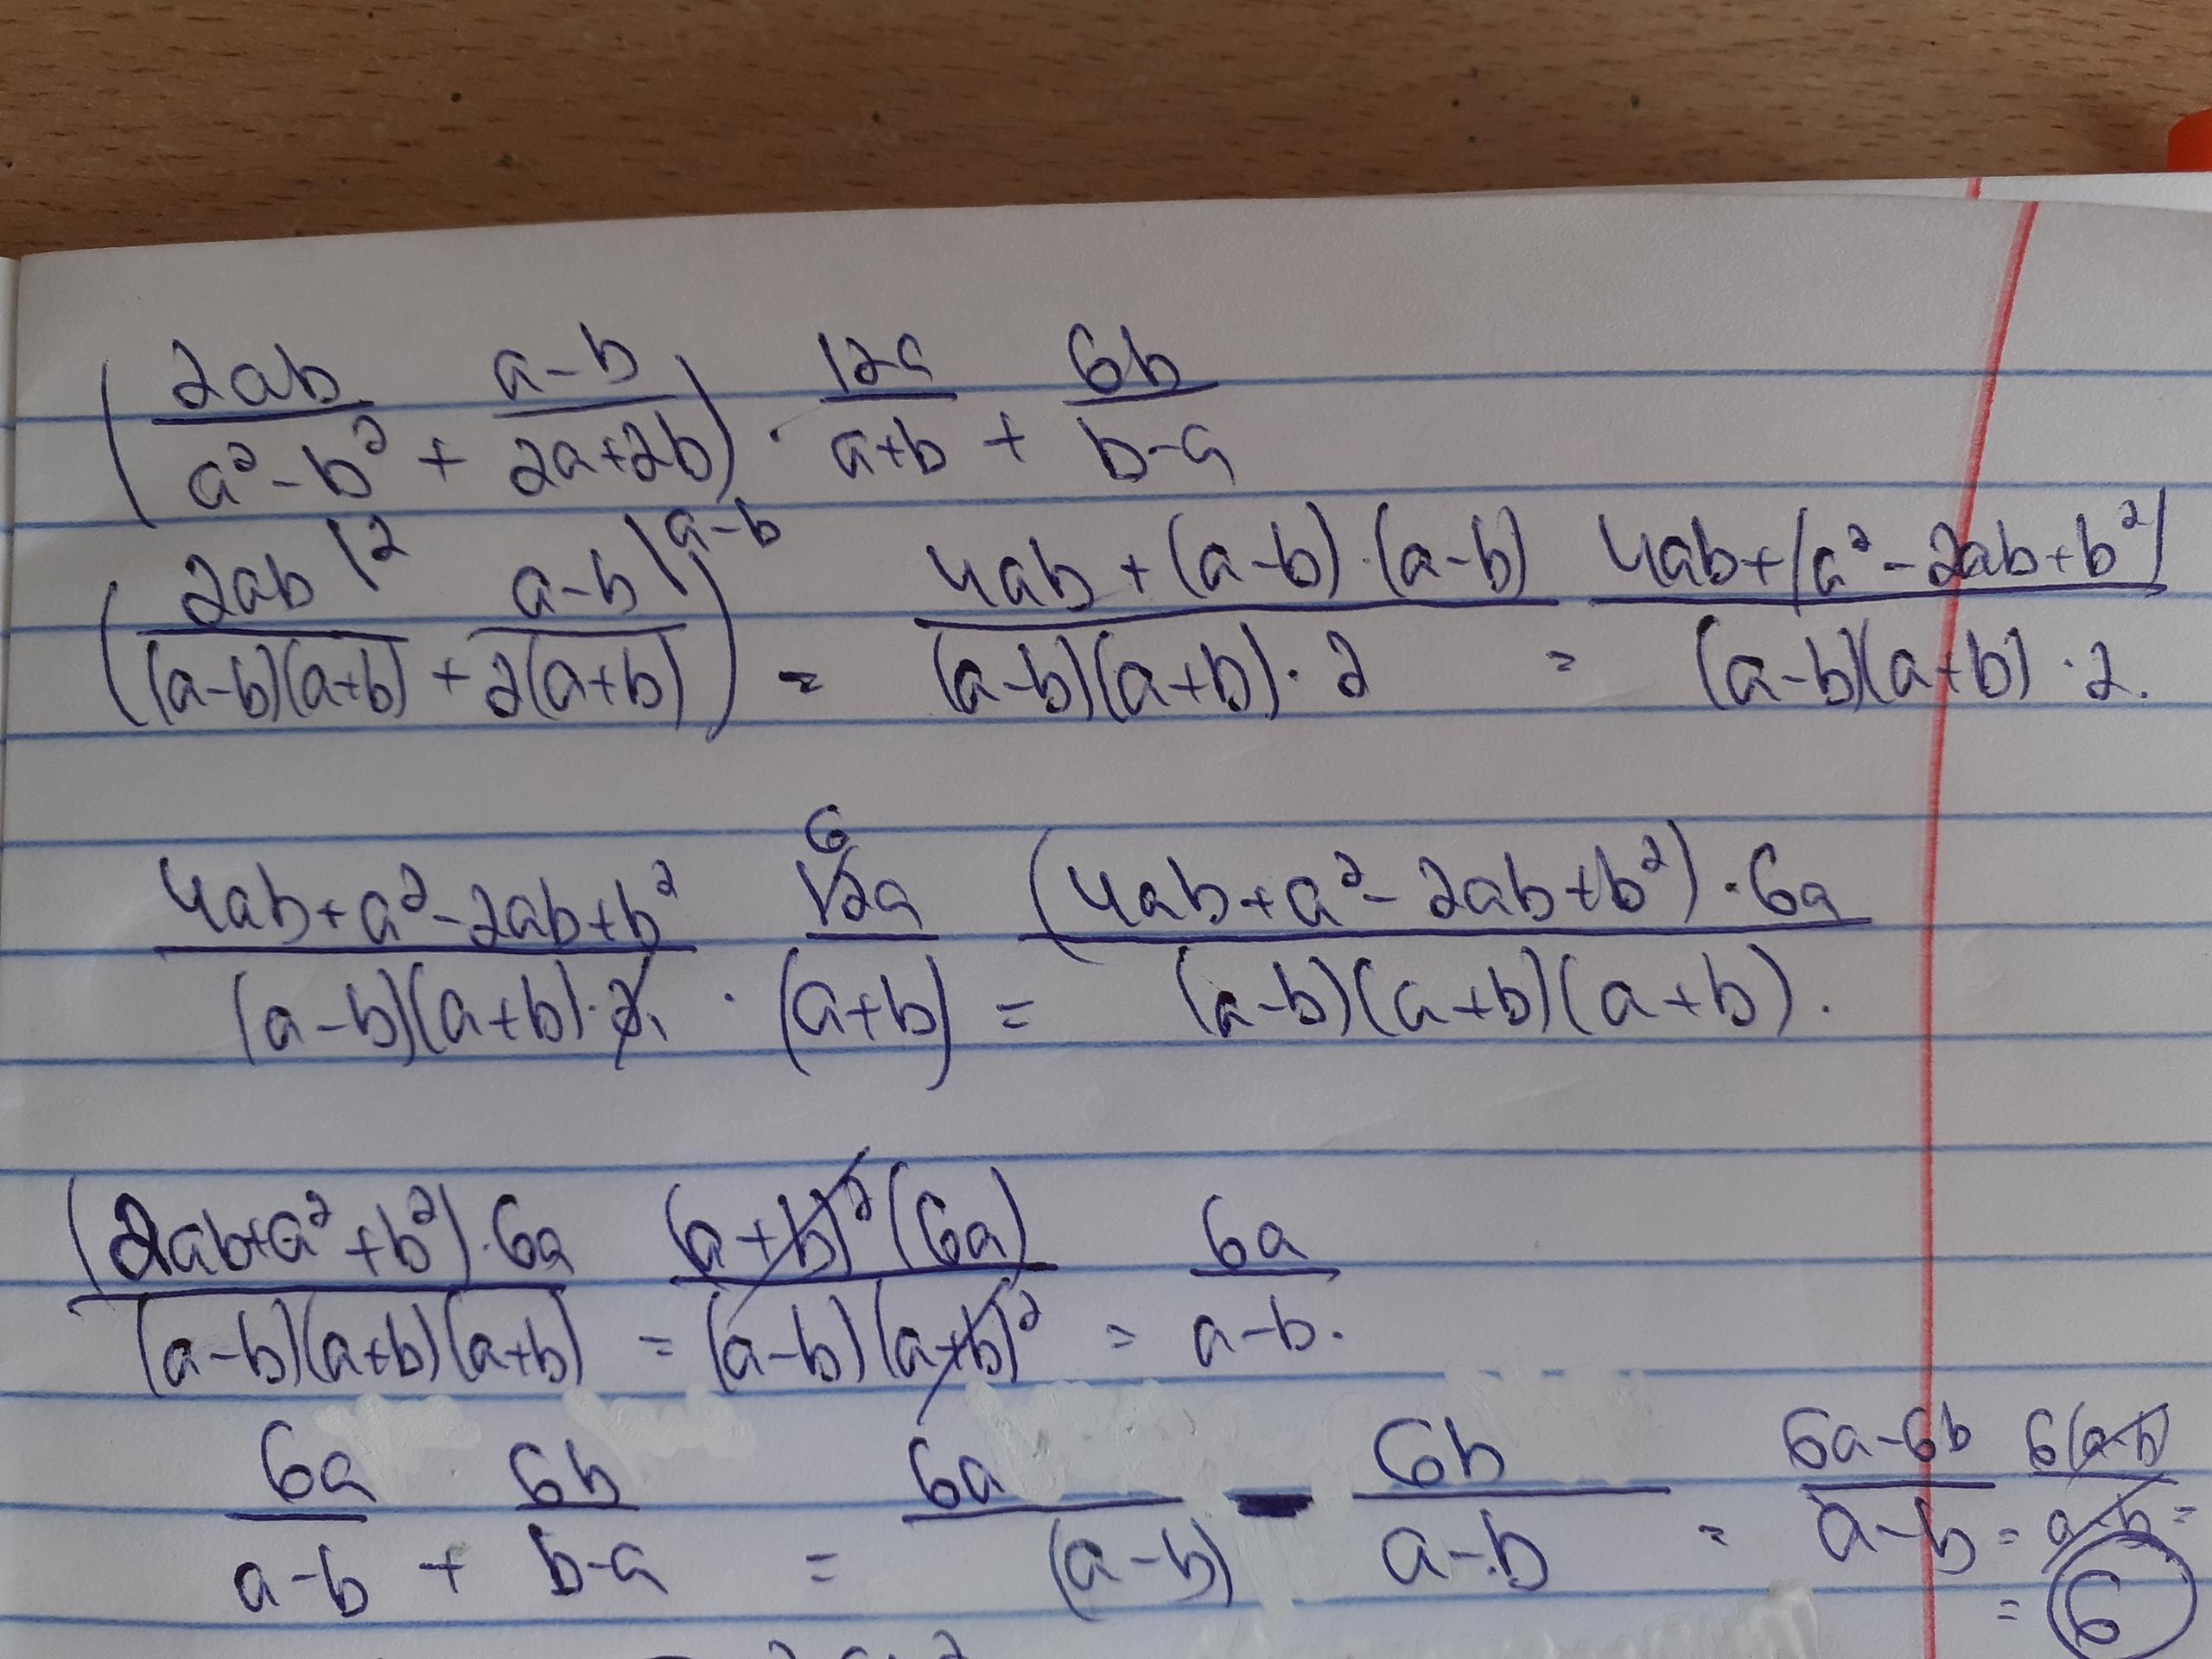 (2ab/(a²-b²) + (a-b)/(2a+2b)) · 12a/(a+b) + 6b/(b-a)
(2ab|2/((a-b)(a+b)) + (a-b)|a-b/(2(a+b))) = (4ab+(a-b)·(a-b))/((a-b)(a+b)·2) = (4ab+(a²-2ab+b²))/((a-b)(a+b)·2.)
(4ab+a²-2ab+b²)/((a-b)(a+b)·2) · 6 12a/(a+b) = ((4ab+a²-2ab+b²)·6a)/((a-b)(a+b)(a+b)).
((2ab+a²+b²)·6a)/((a-b)(a+b)(a+b)) = ((a+b)²(6a))/((a-b)(a+b)²) = 6a/(a-b).
6a/(a-b) + 6b/(b-a) = 6a/(a-b) - 6b/(a-b) = (6a-6b)/(a-b) = 6(a-b)/(a-b) =
= 6